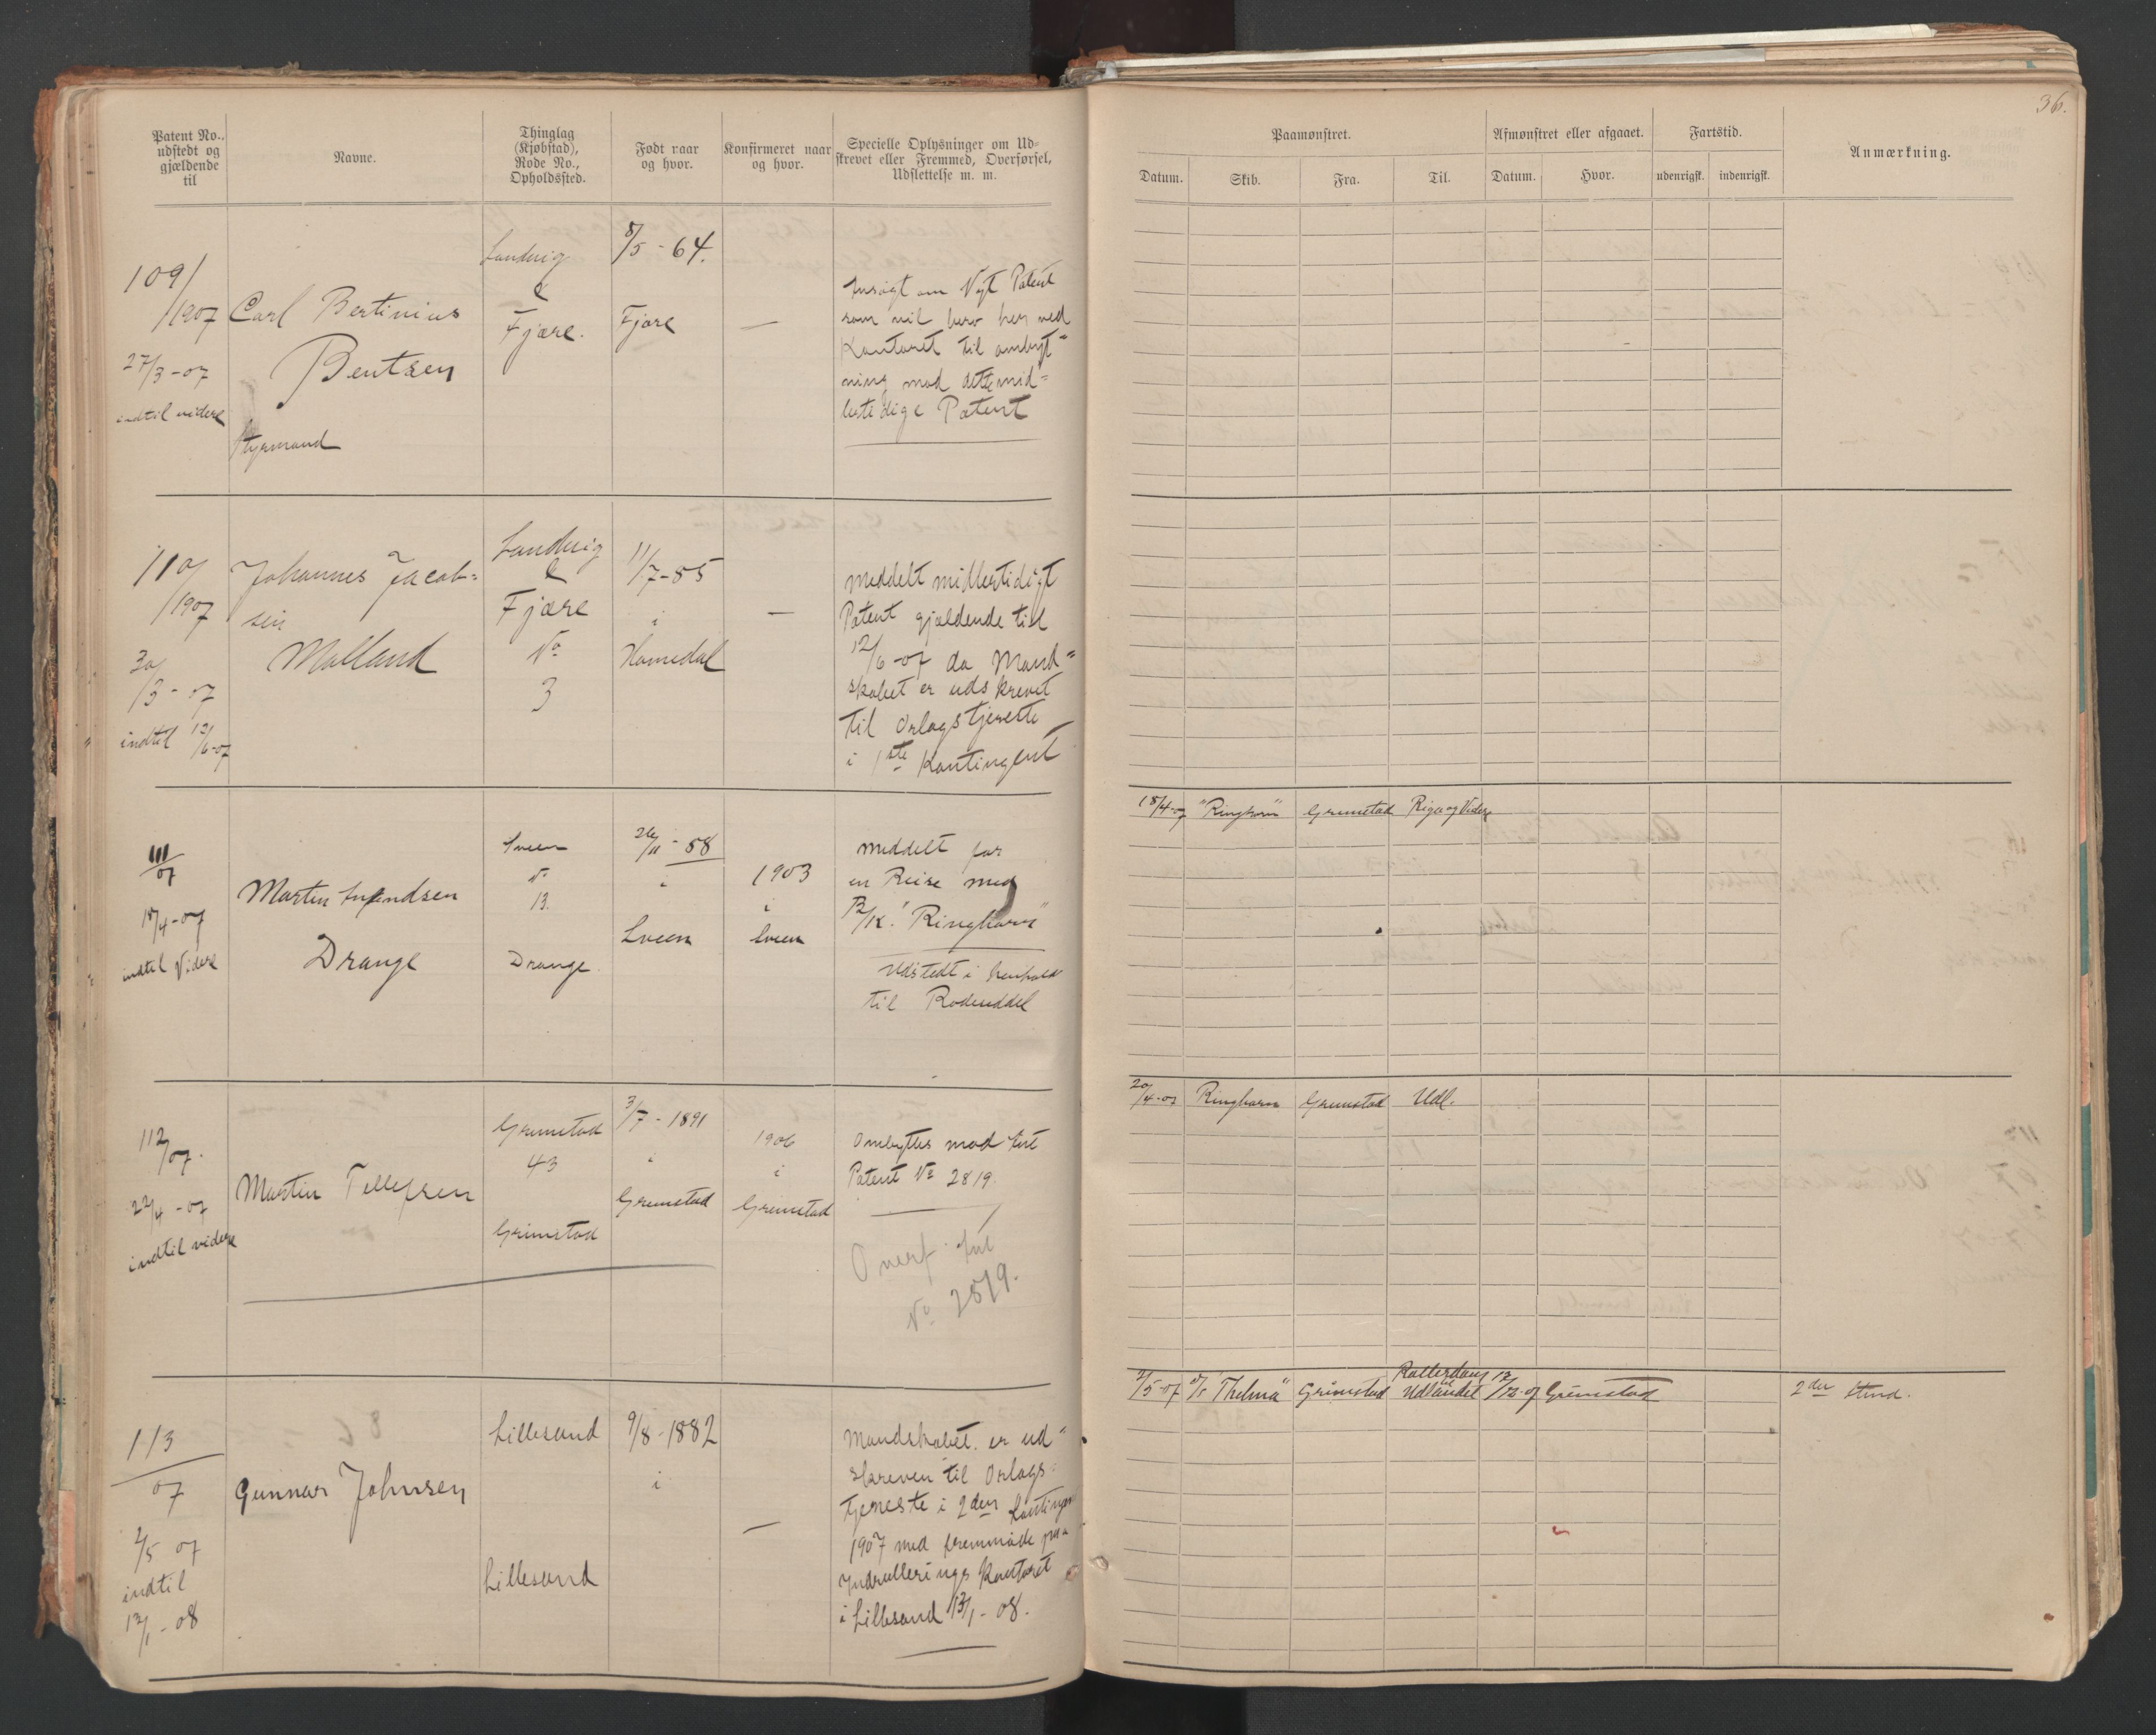 36.
Patent No.,
udstedt og
gjældende
til
Navne.
Thinglag
(Kjøbstad),
Rode No.,
Opholdssted.
Født naar
og hvor.
Konfirmeret naar
og hvor.
Specielle Oplysninger om Ud=
skrevet eller Fremmed, Overførsel,
Udslettelse m. m.
Paamønstret.
Afmønstret eller afgaaet.
Fartstid.
Anmærkning.
Datum.
Skib.
Fra.
Til.
Datum.
Hvor.
udenrigsk.
indenrigsk.
109/
/1907
27/3-07
indtil videre
Carl Bertinius
Bentsen
Styrmand
Landvig
&
Fjære.
8/5-64.
Fjære
—
Ansøgt om Nyt Patent
som vil bero her ved
Kontoret til ombyt=
ning mod dette mid=
lertidige Patent
110/
/1907
30/
/3-07
indtil 12/6-07
Johannes Jacob=
sen
Molland
Landvig
&
Fjære
No
3
11/7-85
i
Homedal
—
Meddelt midlertidigt
Patent gjældende til
12/6-07 da Mand=
skabet er udskrevet
til Orlogstjeneste
i 1ste Kontingent
111/07
18/4-07
indtil Videre
Martin
Drange
Sveen
No
13.
Drange
26/11-88
i
Sveen
1903
i
Sveen
meddelt for
en Reise med
"Ringhorn"
Udstedt i henhold
til Rodeseddel
18/4-07 "Ringhorn" Grimstad Riga og Videre
112/07.
22/4-07
indtil videre
Martin Tellefsen
Grimstad
43
Grimstad
3/7-1891
i
Grimstad
1906
i
Grimstad
Ombyttes mod fast
Patent No 2819.
Overf. til
No 2819.
20/4-07 Ringhorn Grimstad Udl.
113
07
2/5 07
indtil
12/1-08
Gunnar Johnsen
Lillesand
Lillesand
9/8-1882
i
—
Mandskabet er ud=
skreven til Orlogs=
tjeneste i 2den Kontingen
1907 med fremmøde paa
Indrullerings Kontoret
i Lillesand 13/1-08.
2/5-07 D/S "Thelma" Grimstad Rotterdam til Udlandet 12/12-07 Grimstad
2den Stmd.